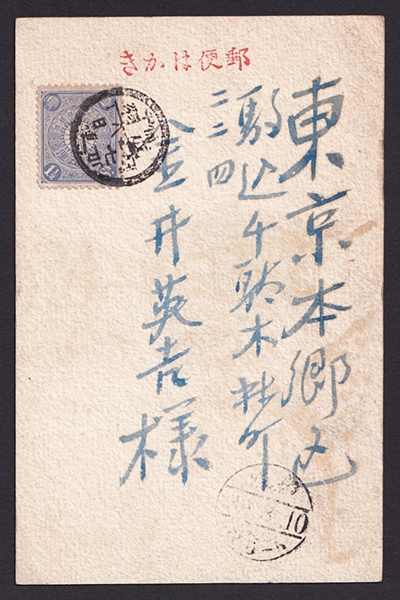 郵便はかき
東京本郷区
駒込千駄木林町
二二四
金井英吉様
1½